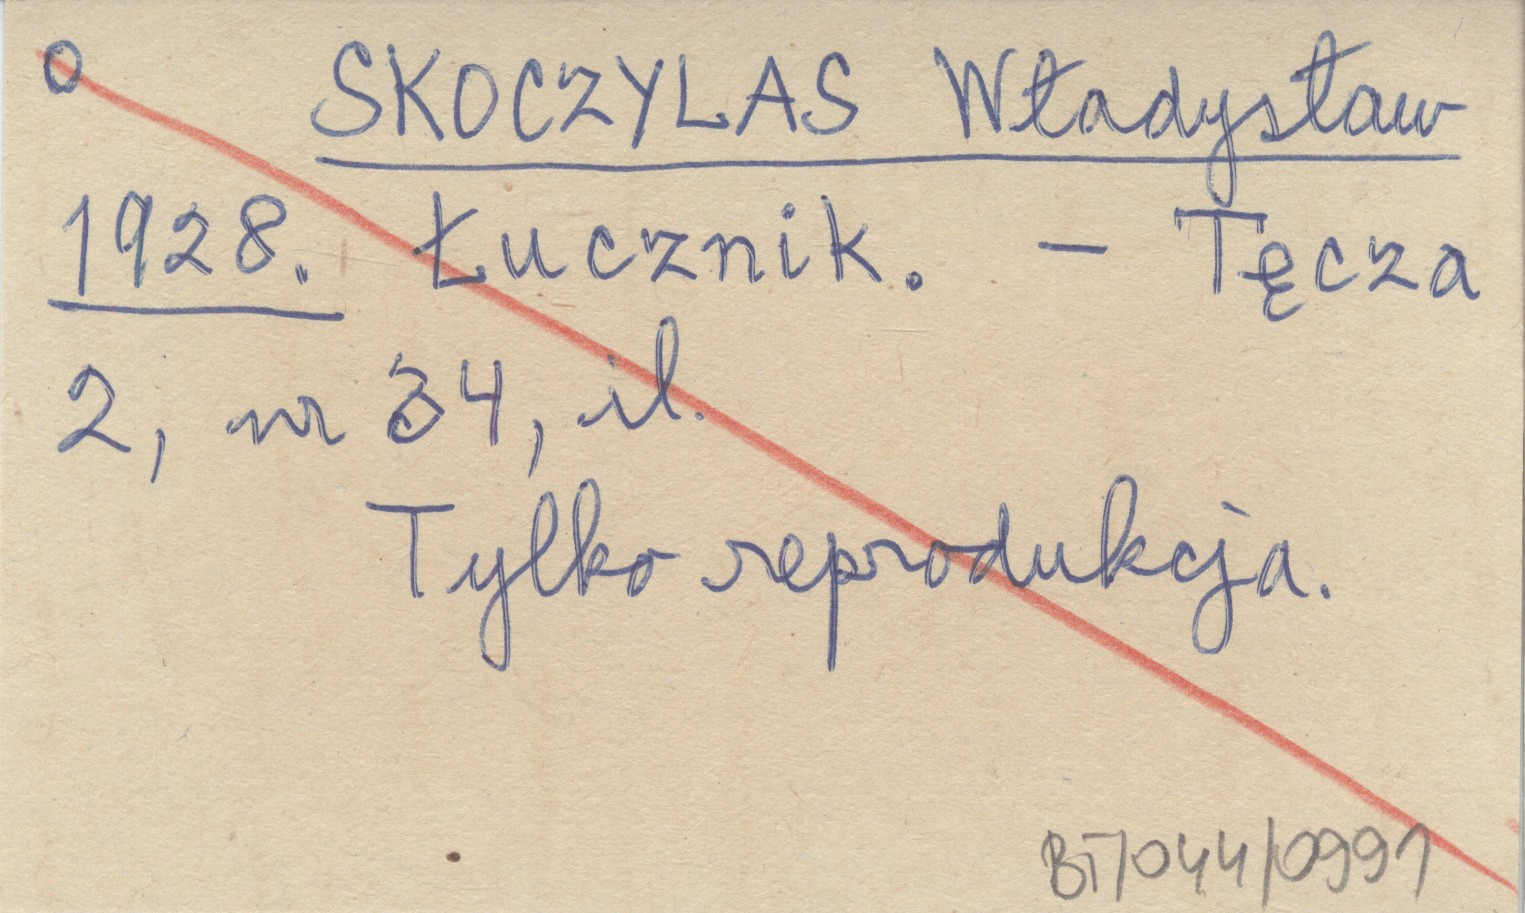 O SKOCZYLAS Władysław
1928. Łucznik. – Tęcza
2, nr 34, il.
Tylko reprodukcja.
BT/044/0991